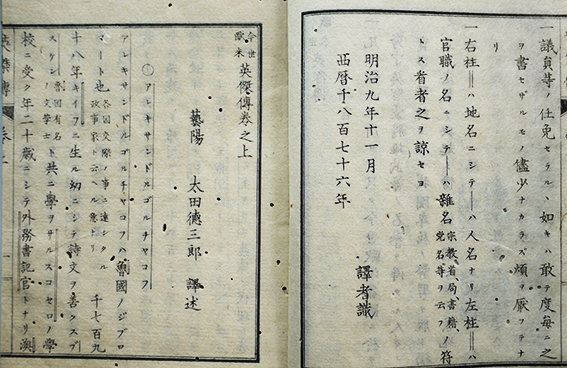 一議員等ノ任免セラルヽ如キハ敢テ度每ニ之
ヲ書セザルモノ儘少ナカラズ煩ヲ厭フテナ
リ
一右柱ハ地名ニシテハ人名ナリ左柱ハ
官職ノ名ニシテハ雜名宗教省局書籍ノ黨名等ヲ云フノ符
トス看者之ヲ諒セヨ
明治九年十一月
西曆千八百七十六年
譯者識
今世歐米英傑傳卷之上
藝陽 太田德三郎 譯述
○アレキサンドルゴルチヤコフ
アレキサンドルゴルチヤコフハ魯國ノジプロ
マート也各国交際ノ事ニ達シタル政事家ト云ヘル意ナリ千七百九
十八年キイフニ生ル幼ニシテ詩文ヲ善クスプ
スケン魯国有名ノ文學士ト共ニ學ヲサルスコセロノ學
校ニ受ク年二十歲ニシテ外務書記官トナリ澳
英傑傳